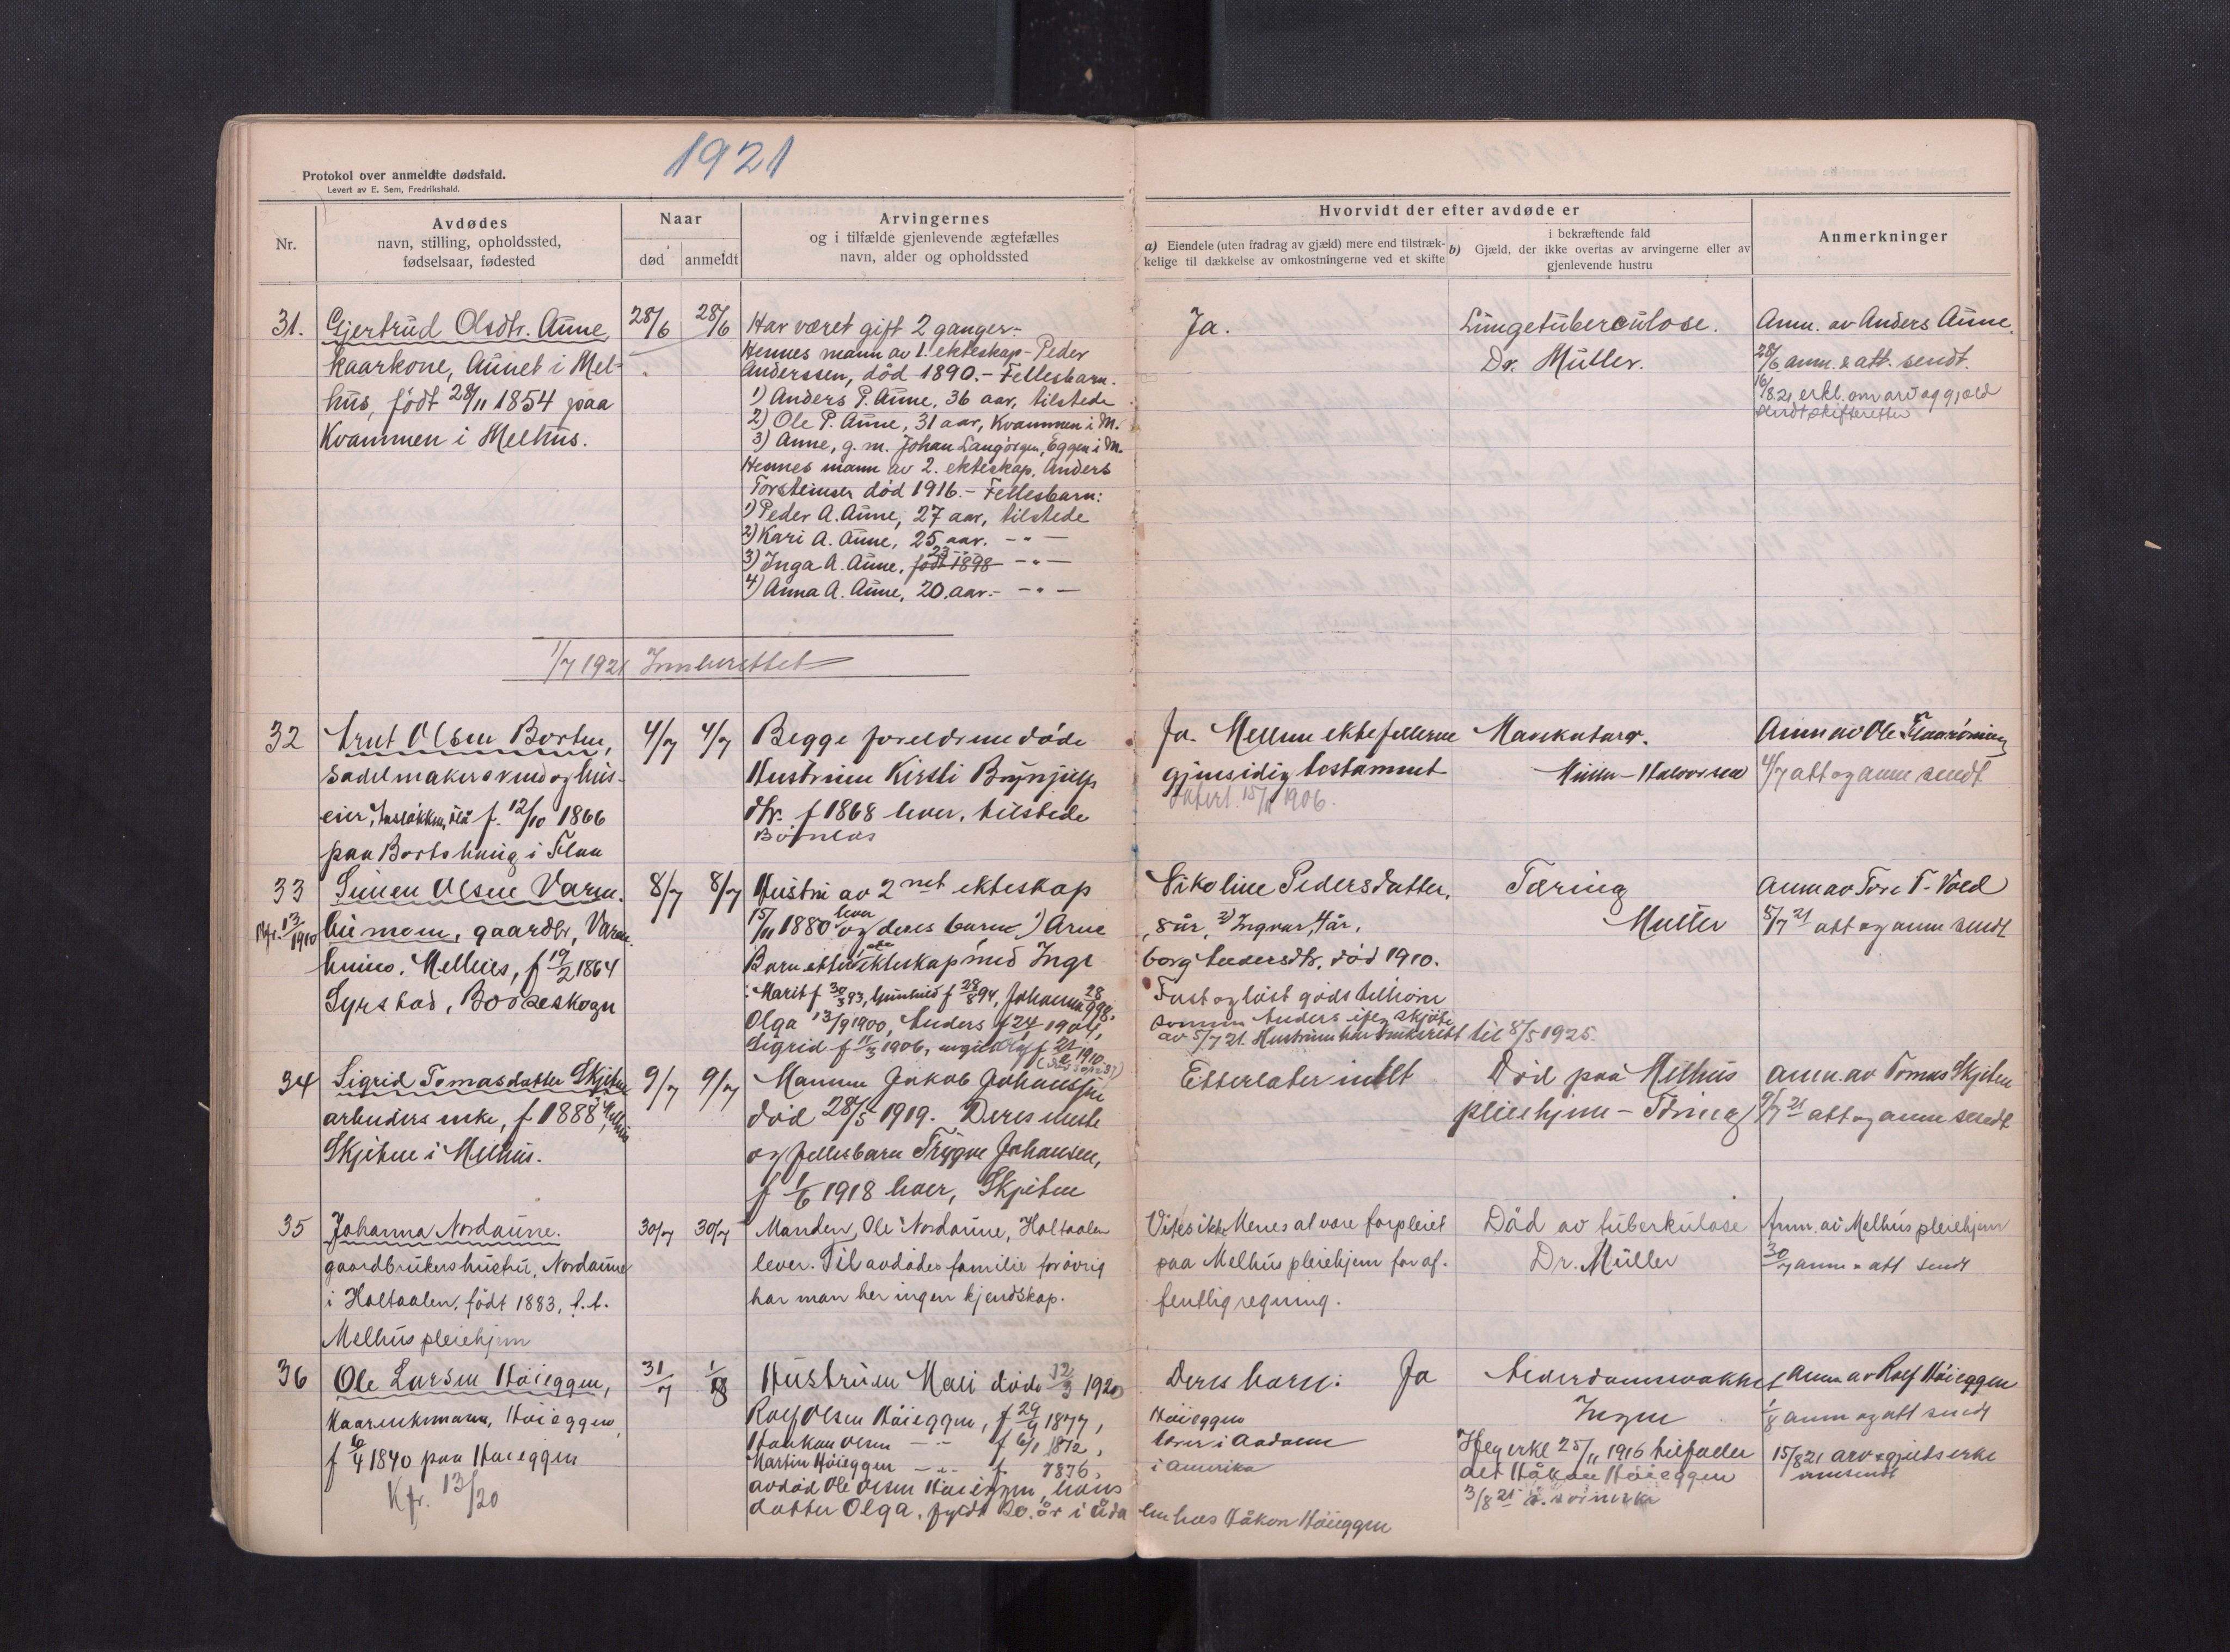 1921
Protokol over anmeldte dødsfald.
Levert av E. Sem, Fredrikshald.
Nr.
Avdødes
navn, stilling, opholdssted,
fødselsaar, fødested
Naar
død
anmeldt
Arvingernes
og i tilfælde gjenlevende ægtefælles
navn, alder og opholdssted
Hvorvidt der efter avdøde er
a) Eiendele (uten fradrag av gjæld) mere end tilstræk-
kelige til dækkelse av omkostningerne ved et skifte
i bekræftende fald
b) Gjæld, der ikke overtas av arvingerne eller av
gjenlevende hustru
Anmerkninger
31.
Gjertrud Olsdtr. Aune,
kaarkone, Aunet i Mel-
hus, født 28/11 1854 paa
Kvammen i Melhus.
28/6
28/6
Har været gift 2 ganger.-
Hennes mann av 1. ekteskap - Peder
Anderssen, død 1890.- Fellesbarn.
1) Anders P. Aune, 36 aar, tilstede
2) Ole P. Aune, 31 aar, Kvammen i M.
3) Anne, g. m. Johan Langørgen, Eggen i M.
Hennes mann av 2. ekteskap, Anders
Torsteinsen død 1916.- Fellesbarn:
1) Peder A. Aune, 27 aar, tilstede
2) Kari A. Aune, 25 aar. - " -
3) Inga A. Aune, født 1898 23 - " -
4) Anna A. Aune, 20 aar.- - " -
Ja.
Lungetuberculose.
Dr. Müller.
Anm. av Anders Aune.
28/6 anm. & att. sendt.
16/8 21 erkl. om arv og gjæld
sendt skifteretten
1/7 1921 Innberettet
32
Arnt Olsen Borten,
sadelmakersvend og hus-
eier, f. 12/10 1866
paa Bortshaug i Flaa
4/7
4/7
Begge foreldrene døde
Hustruen Kirsti Brynjulfs
dtr. f 1868 lever, tilstede
Barnløs
Ja. Mellem ektefellerne
gjensidig testament
datert 15/11 1906.
Mavekatarr.
Müller - Halvorsen
Anm av Ole Flaarønning
4/7 att og anm sendt
33
Kfr. 13/1910
Simen Olsen Varm-
buemoen, gaardbr, Varm-
buino. Melhus, f 19/2 1864
Syrstad,
8/7
8/7
Hustru av 2net ekteskap
15/11 1880 lever og deres barn 1) Arne
Barn etter ekteskap med Inge
: Marit f 30/3 93, Gunhild f 28/8 94, Johanna 28/9 98,
Olga 13/9 1900, Anders f 24/1 1904,
Sigrid f 11/3 1906, f 21/2 1910
Nikoline Pedersdatter,
8 år, 2) Ingvar, 4 år,
borg Andersdtr. død 1910.
Fast og løst gods tilhører
sønnen Anders iflg skjøte
av 5/7 21. Hustruen har bruksrett til 8/5 1925.
Tæring
Müller
anm av Tore T. Voll
5/7 21 att og anm sendt
34
Sigrid Tomasdatter Skjetne
arbeiders enke, f 1888, Melhus
Skjetne i Melhus.
9/7
9/7
Mannen Jakob Johanssen
død 28/5 1919. Deres eneste
og fellesbarn Trygve Johansen,
f 1/6 1918 lever, Skjetne
Efterlater intet
Død paa Melhus
pleiehjem - Tæring
anm. av Tomas Skjetne
9/7 21 att og anm sendt
35
Johanna Nordaune.
gaardbrukershustru, Nordaune
i Holtaalen, født 1883, f. t.
Melhus pleiehjem
30/7
30/7
Manden, Ole Nordaune, Holtaalen
lever. Til avdødes familie forøvrig
har man her ingen kjendskap.
Vites ikke. Menes at være forpleiet
paa Melhus pleiehjem for of-
fentlig regning.
Død av tuberkulose
Dr. Müller
Anm. av Melhus pleiehjem
30/7 anm & att sendt
36
Ole Larsen Høieggen,
Kaarenkemann, Høieggen,
f 6/4 1840 paa Høieggen
Kfr. 13/20
31/7
1/8
Hustruen Mali døde 12/3 1920
Rolf Olsen Høieggen, f 29/9 1877,
Haakon Olsen - " - f 6/1 1872,
Martin Høieggen - " - f. 1876,
avdød Ole Olsen Høieggen, hans
datter Olga, fyldt 20. år i Ada
Deres barn: Ja
Høieggen
i Amerika
len hos Håkon Høieggen
Alderdomssvakhet
Ingen
15/8 21 arv & gjeldserkl
Anm av Rolf Høieggen
1/8 anm og att sendt